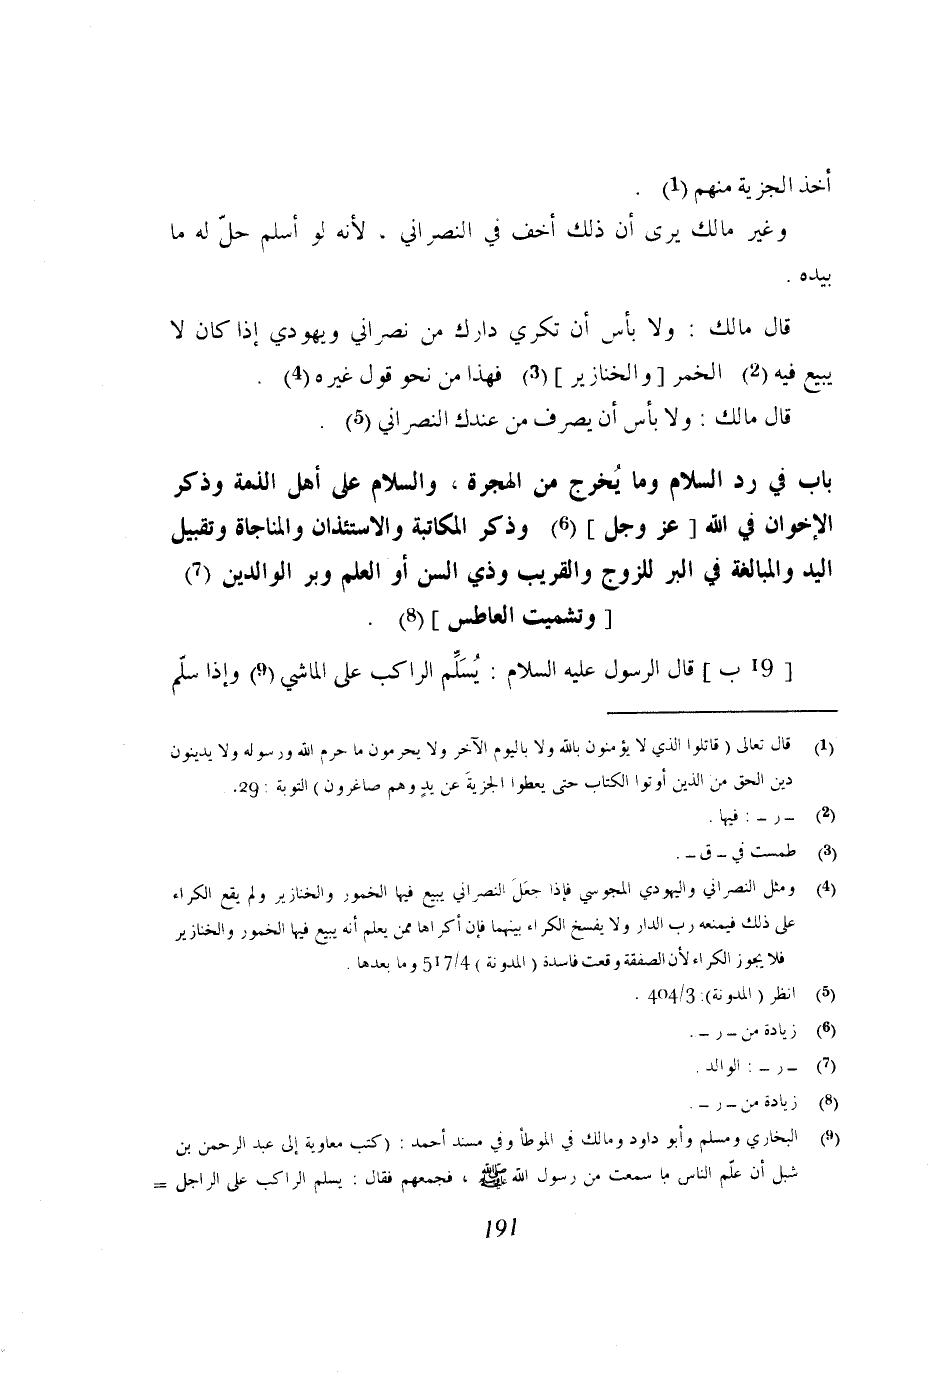 أخذ الجزية منهم (1) .
وغير مالك يرى أن ذلك أخف في النصراني . لأنه لو أسلم حلّ له ما
بيده .
قال مالك : ولا بأس أن تكري دارك من نصراني ويهودي إذا كان لا
يبيع فيه (2) الخمر [ والخنازير ] (3) فهذا من نحو قول غيره (4) .
قال مالك : ولا بأس أن يصرف من عندك النصراني (5) .
باب في رد السلام وما يُخرج من الهجرة ، والسلام على أهل الذمة وذكر
الإخوان في الله [ عز وجل ] (6) وذكر المكاتبة والاستئذان والمناجاة وتقبيل
اليد والمبالغة في البر للزوج والقريب وذي السن أو العلم وبر الوالدين (7)
[ وتشميت العاطس ] (8) .
[ 19 ب ] قال الرسول عليه السلام : يُسَلِّم الراكب على الماشي (9) وإذا سلّم
(1) قال تعالى ( قاتلوا الذي لا يؤمنون بالله ولا باليوم الآخر ولا يحرمون ما حرم الله ورسوله ولا يدينون
دين الحق من الذين أوتوا الكتاب حتى يعطوا الجزيةَ عن يدٍ وهم صاغرون ) التوبة : 29.
(2) – ر – : فيها .
(3) طمست في – ق – .
(4) ومثل النصراني واليهودي المجوسي فإذا جعَلَ النصراني يبيع فيها الخمور والخنازير ولم يقع الكراء
على ذلك فيمنعه رب الدار ولا يفسخ الكراء بينهما فإن أكراها ممن يعلم أنه يبيع فيها الخمور والخنازير
فلا يجوز الكراء لأن الصفقة وقعت فاسدة ( المدونة ) 517/4 وما بعدها .
(5) انظر ( المدونة): 404/3 .
(6) زيادة من – ر – .
(7) – ر – : الوالد .
(8) زيادة من – ر – .
(9) البخاري ومسلم وأبو داود ومالك في الموطأ وفي مسند أحمد : (كتب معاوية إلى عبد الرحمن بن
شبل أن علّم الناس ما سمعت من رسول الله ﷺ ، فجمعهم فقال : يسلم الراكب على الراجل =
191